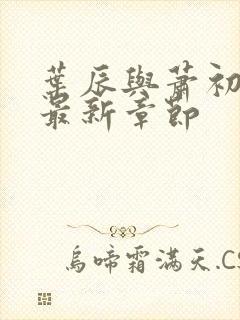 葉辰與蕭初
最新章節
烏啼霜滿天.CS